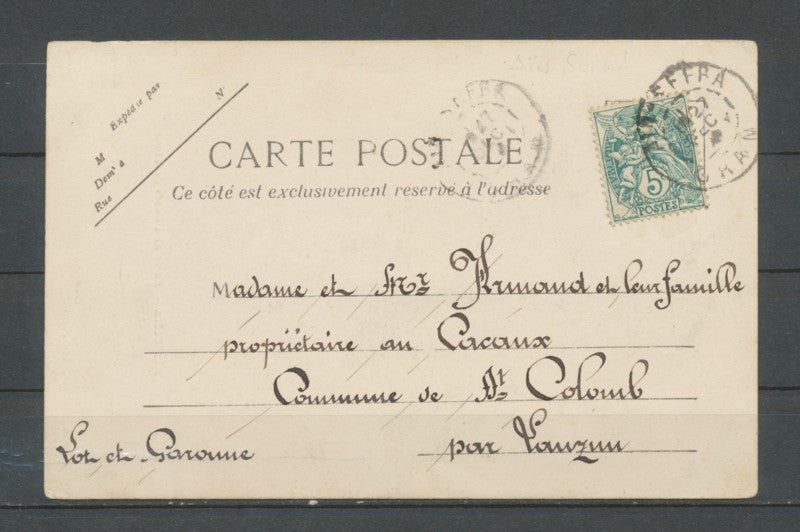 Expédié par
N°
M
Dem^t à
Rue
CARTE POSTALE
Ce côté est exclusivement reservé à l'adresse
5
POSTES
ORAN
Madame et Mr Armand et leur famille
propriétaire au Cacaux
Commune de St Colomb
par Lauzun
Lot et Garonne